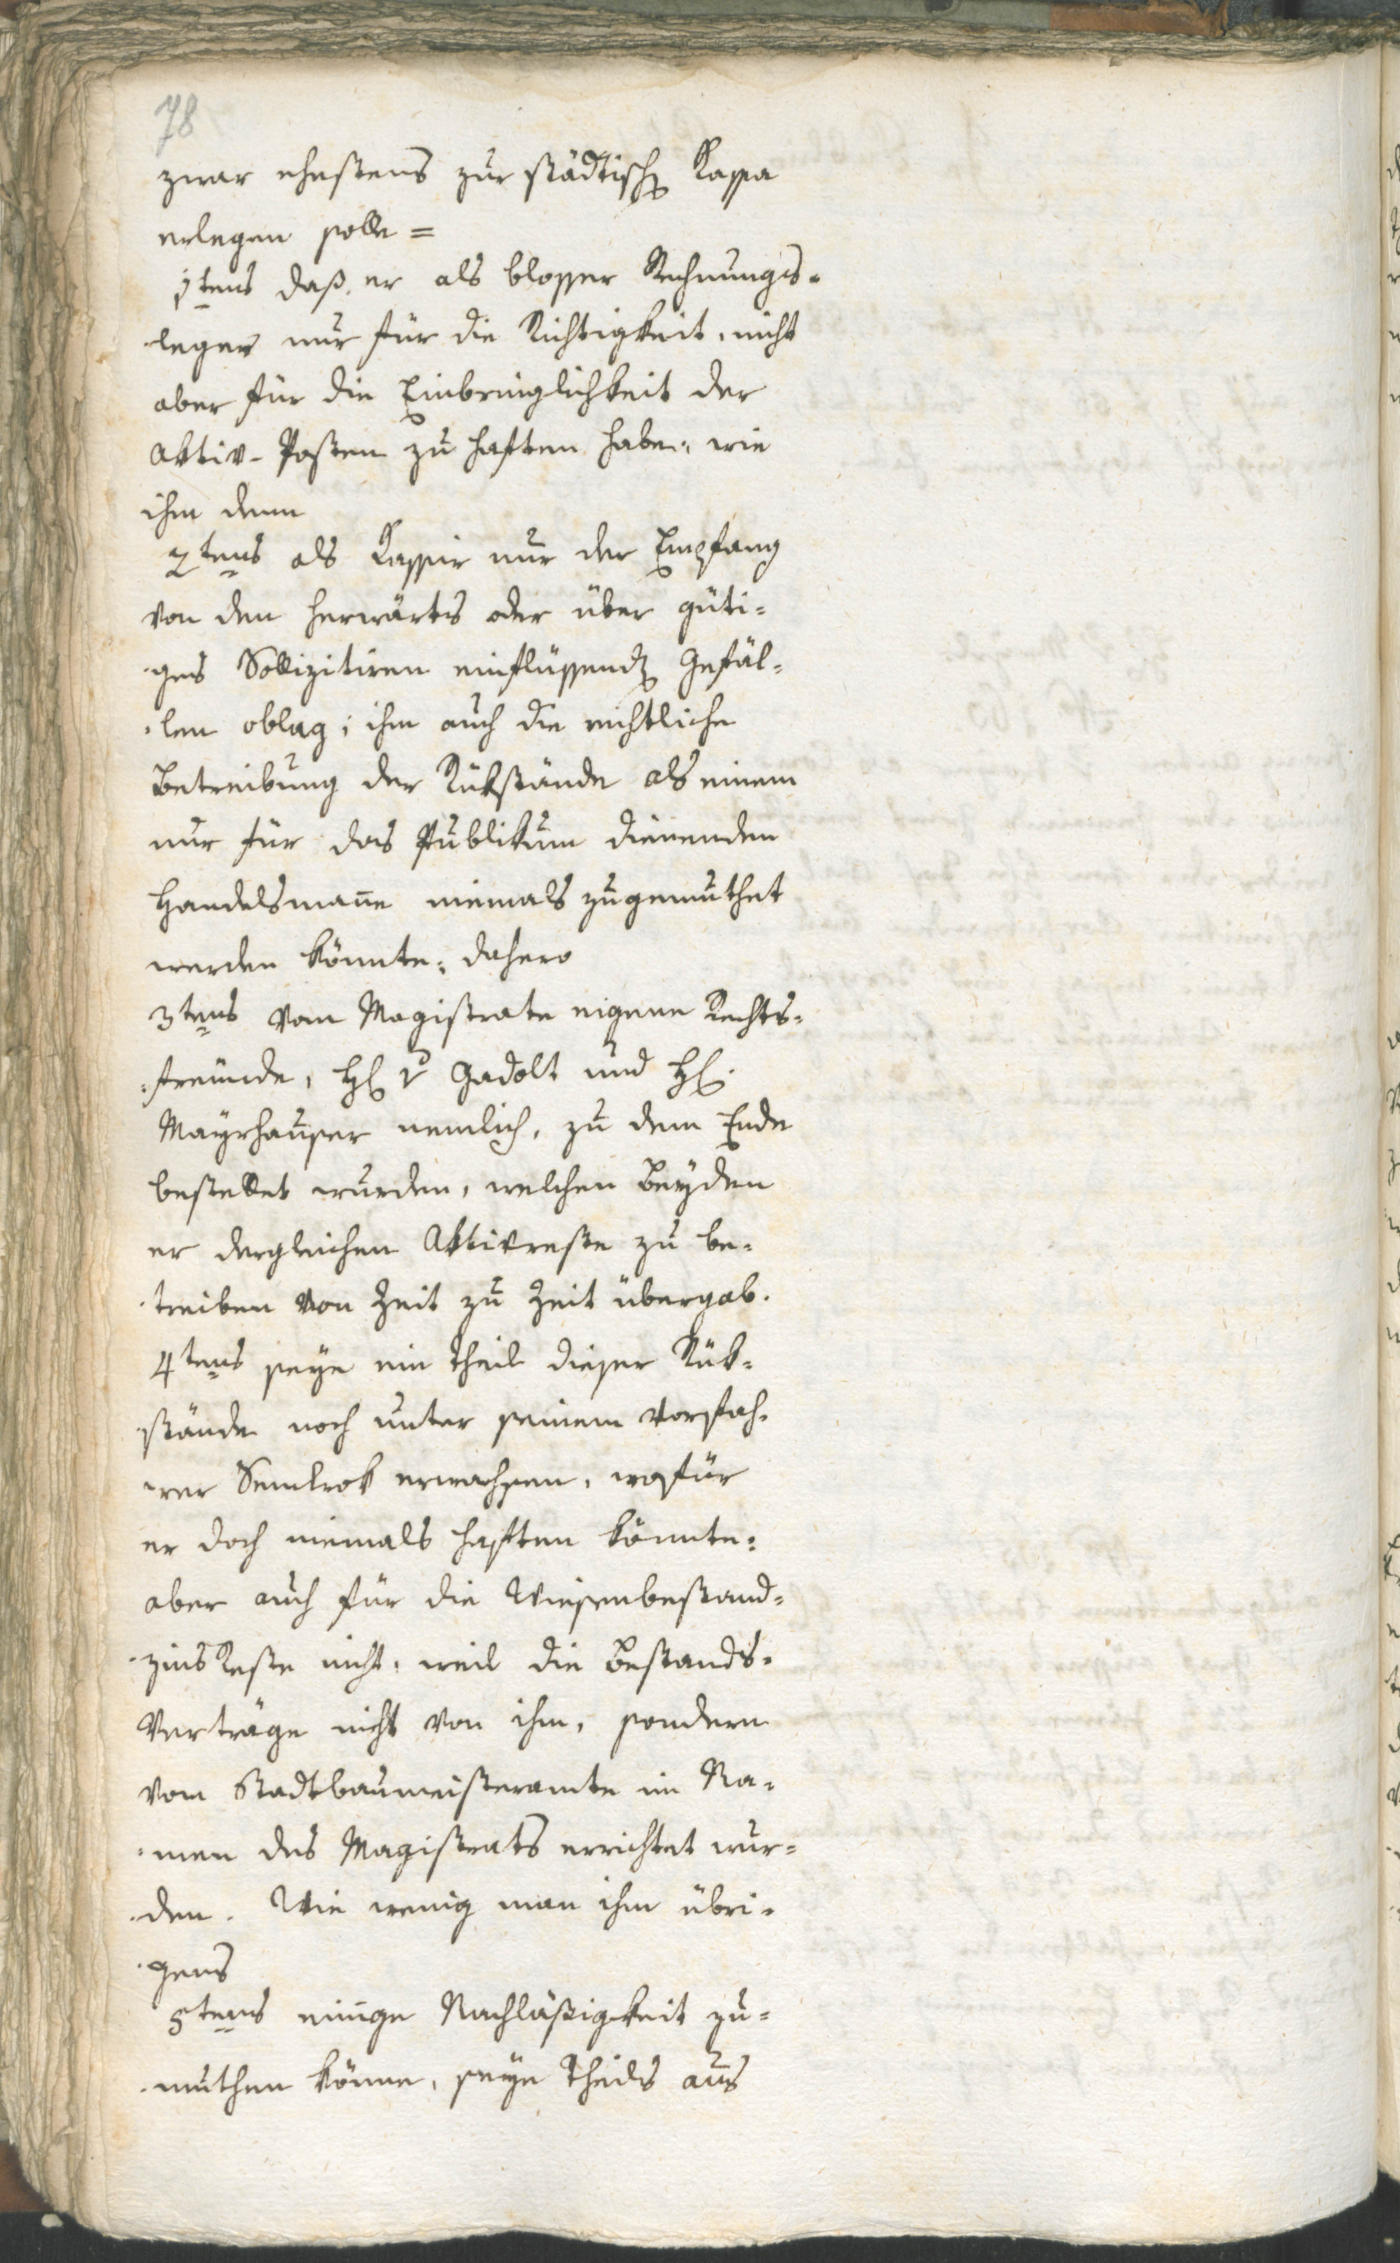 78
zwar ehestens zur städtisch Kassa
erlegen solle =
1tens daß er als blosser Rechnungs-
leger nur für die Richtigkeit, nicht
aber für die Einbringlichkeit der
Aktiv-Posten zu haften habe, wie
ihm denn
2tens als Kassir nur der Empfang
von den herwärts oder über güti-
ges Sollizitiren einflüssend Gefäl-
len oblag; ihm auch die rechtliche
Betreibung der Rükstände als einem
nur für das Publikum dienenden
Handelsmañe niemals zugemuthet
werden könnte; dahero
3tens vom Magistrate eigene Rechts-
freunde, H v Gadolt und H.
Mayrhauser nemlich, zu dem Ende
bestellet wurden, welchen beyden
er dergleichen Aktivreste zu be-
treiben von Zeit zu Zeit übergab.
4tens seye ein Theil dieser Rük-
stände noch unter seinem Vorfah-
rer erwachsen, wofür
er doch niemals haften könnte;
aber auch für die Wiesenbestand-
zins Reste nicht, weil die Bestands-
Verträge nicht von ihm, sondern
vom Stadtbaumeisteramte im Na-
men des Magistrats errichtet wur-
den. Wie wenig man ihm übri-
gens
5tens einige Nachläßigkeit zu-
muthen könne, seye Theils aus